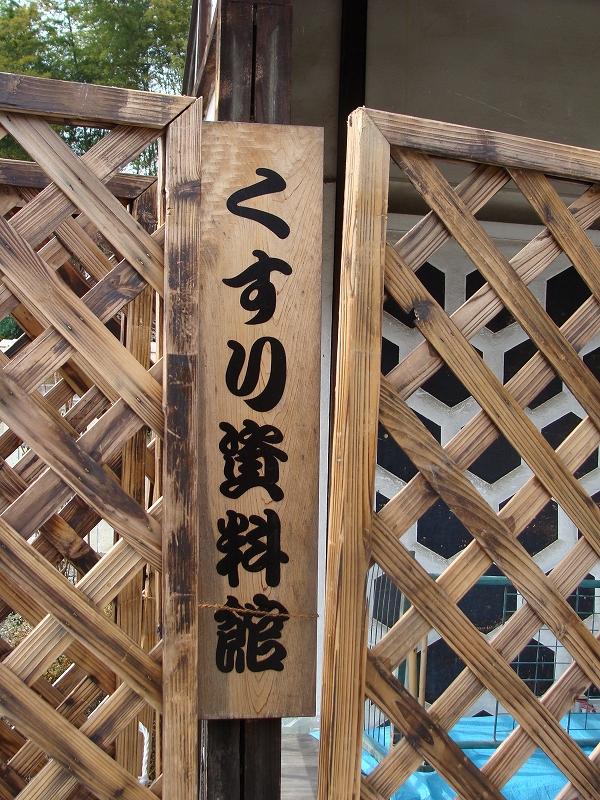 くすり資料館